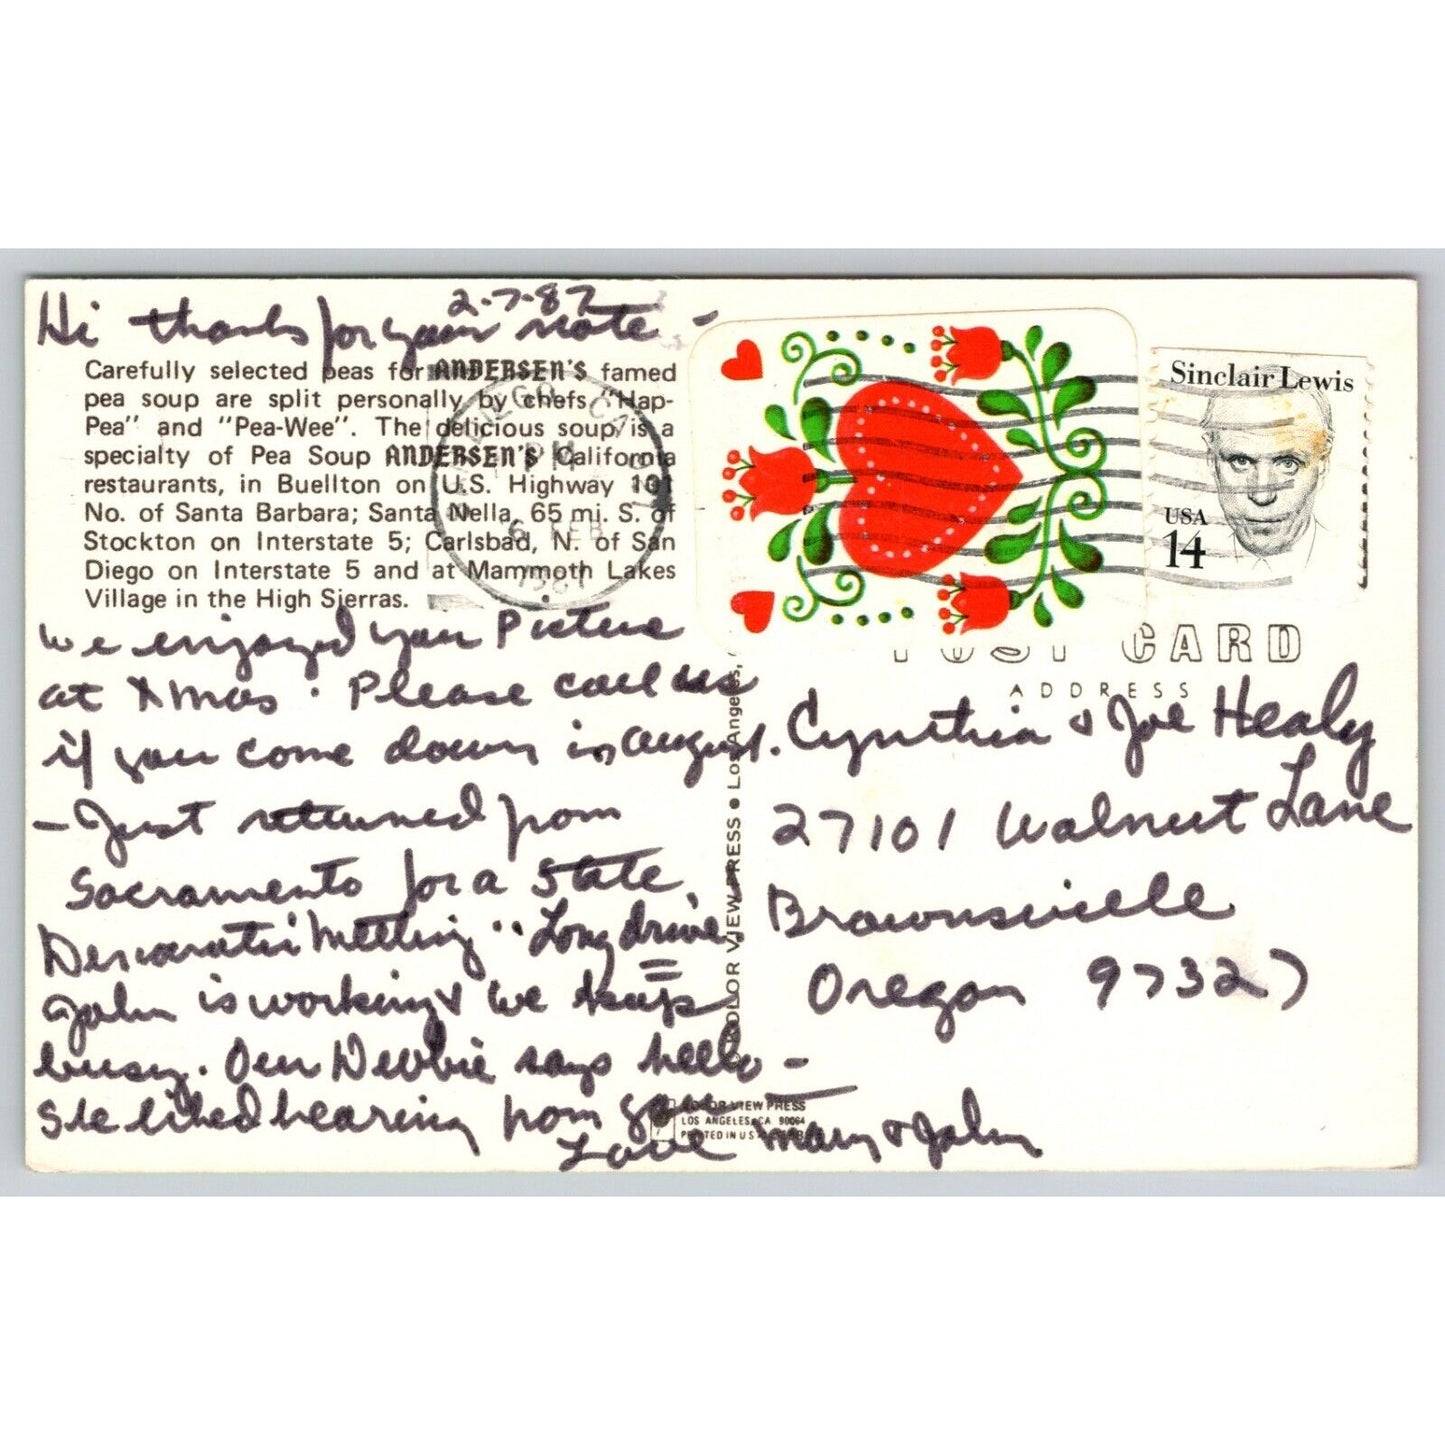 2-7-87
Hi thanks for your note -
Carefully selected peas for ANDERSEN'S famed
pea soup are split personally by chefs "Hap-
Pea" and "Pea-Wee". The delicious soup is a
specialty of Pea Soup ANDERSEN'S California
restaurants, in Buellton on U.S. Highway 101
No. of Santa Barbara; Santa Nella, 65 mi. S. of
Stockton on Interstate 5; Carlsbad, N. of San
Diego on Interstate 5 and at Mammoth Lakes
Village in the High Sierras.
we enjoyed your Picture
at Xmas. Please call us
if you come down in August.
- Just returned from
Sacramento for a State
Democratic Meeting "Long drive
John is working & we keep
busy. Our Debbie says hello -
She liked hearing from you
Love Mary & John
SAN DIEGO CA
PM
6 FEB
1987
Sinclair Lewis
USA
14
POST CARD
ADDRESS
Cynthia & Joe Healy
27101 Walnut Lane
Brownsville
Oregon 97327
COLOR VIEW PRESS • Los Angeles,
COLOR VIEW PRESS
LOS ANGELES, CA 90064
PRINTED IN U.S.A.